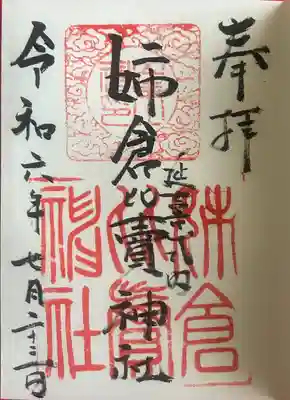 奉拝
延喜式内
姉倉比賣神社
令和六年七月二十三日
姉倉
比賣
神社